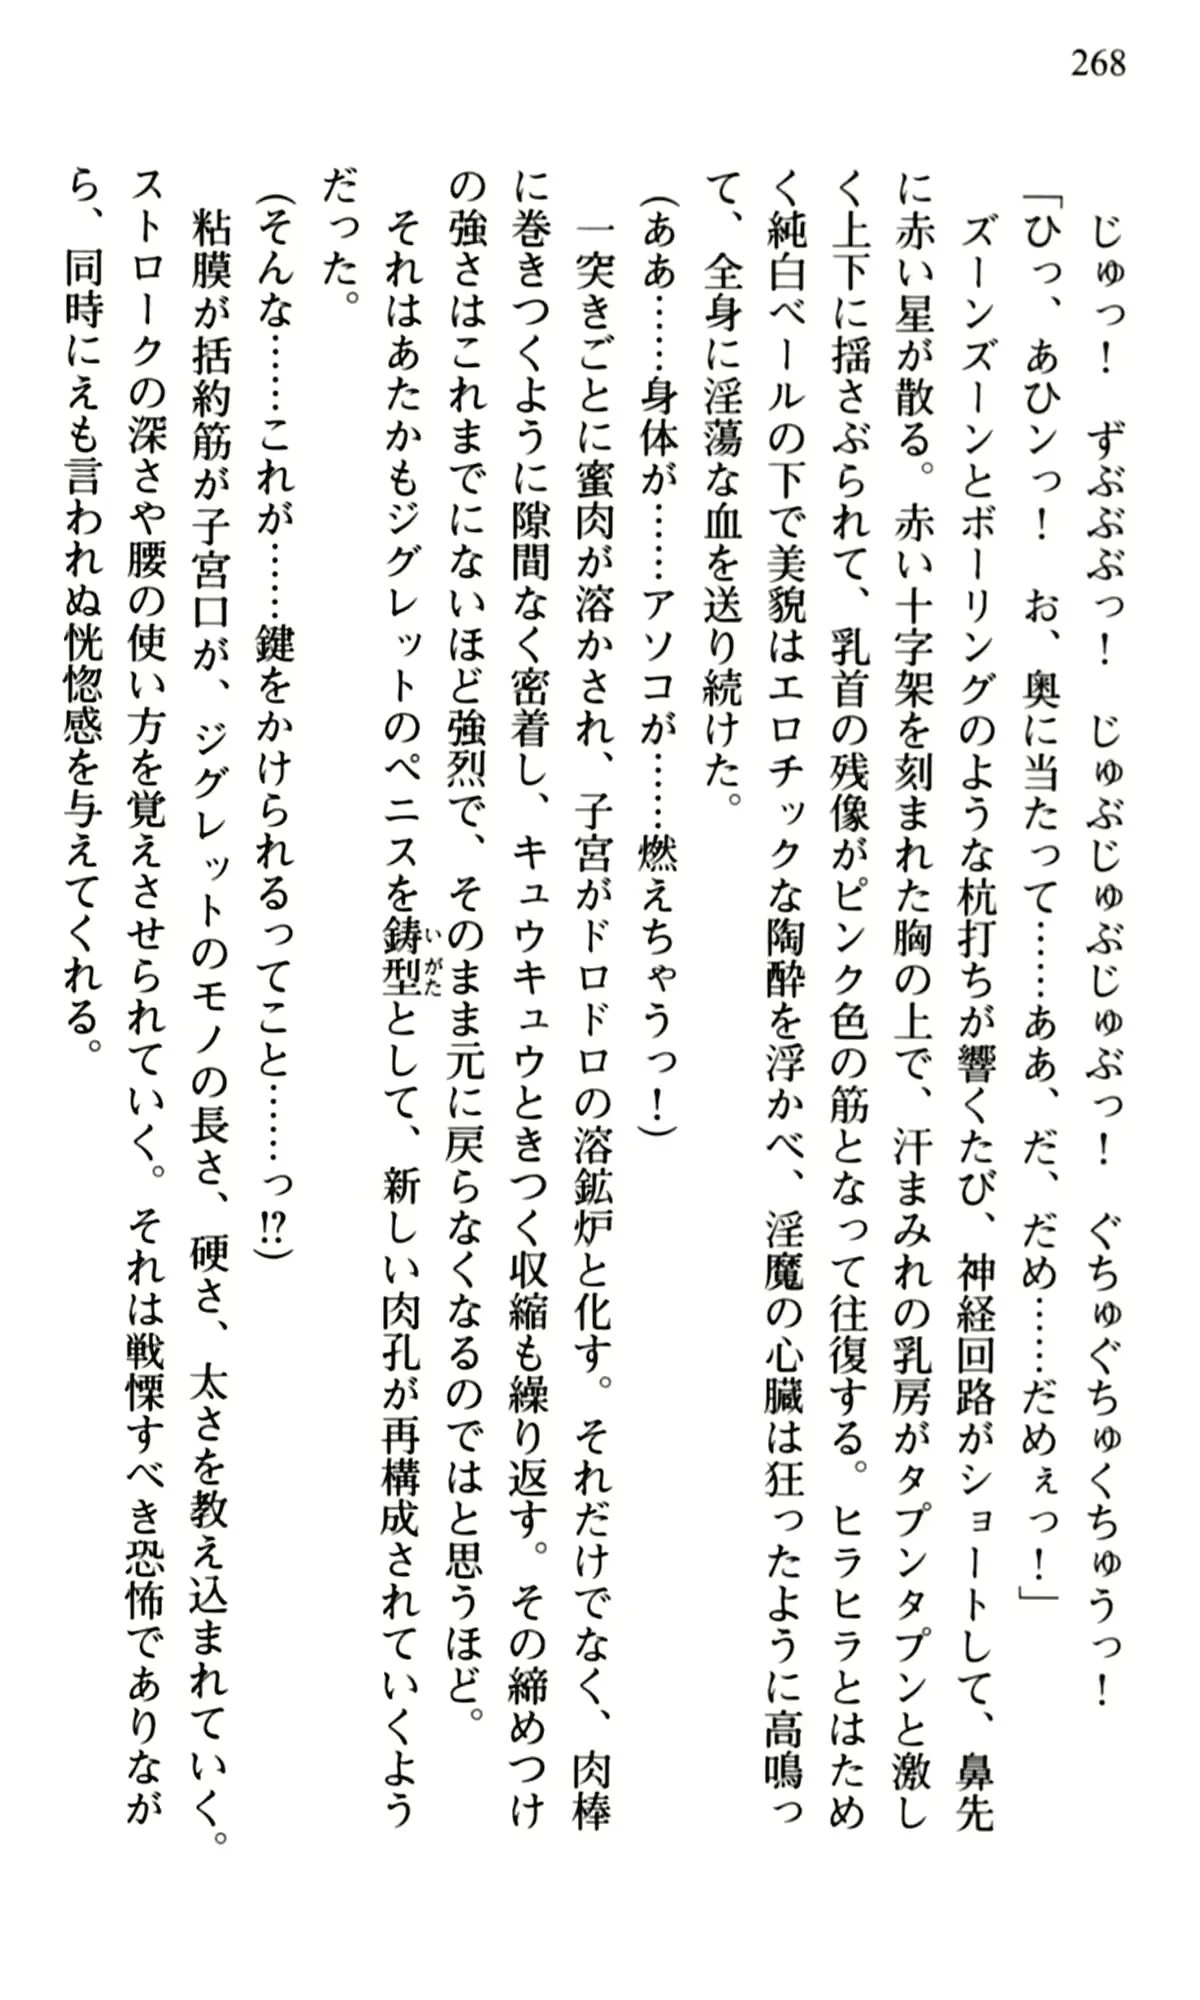 268
じゅっ！　ずぶぶぶっ！　じゅぶじゅぶじゅぶっ！　ぐちゅぐちゅくちゅうっ！
「ひっ、あひンっ！　お、奥に当たって……ああ、だ、だめ……だめぇっ！」
ズーンズーンとボーリングのような杭打ちが響くたび、神経回路がショートして、鼻先
に赤い星が散る。赤い十字架を刻まれた胸の上で、汗まみれの乳房がタプンタプンと激し
く上下に揺さぶられて、乳首の残像がピンク色の筋となって往復する。ヒラヒラとはため
く純白ベールの下で美貌はエロチックな陶酔を浮かべ、淫魔の心臓は狂ったように高鳴っ
て、全身に淫蕩な血を送り続けた。
（ああ……身体が……アソコが……燃えちゃうっ！）
一突きごとに蜜肉が溶かされ、子宮がドロドロの溶鉱炉と化す。それだけでなく、肉棒
に巻きつくように隙間なく密着し、キュウキュウときつく収縮も繰り返す。その締めつけ
の強さはこれまでにないほど強烈で、そのまま元に戻らなくなるのではと思うほど。
それはあたかもジグレットのペニスを鋳型いがたとして、新しい肉孔が再構成されていくよう
だった。
（そんな……これが……鍵をかけられるってこと……っ!?）
粘膜が括約筋が子宮口が、ジグレットのモノの長さ、硬さ、太さを教え込まれていく。
ストロークの深さや腰の使い方を覚えさせられていく。それは戦慄すべき恐怖でありなが
ら、同時にえも言われぬ恍惚感を与えてくれる。